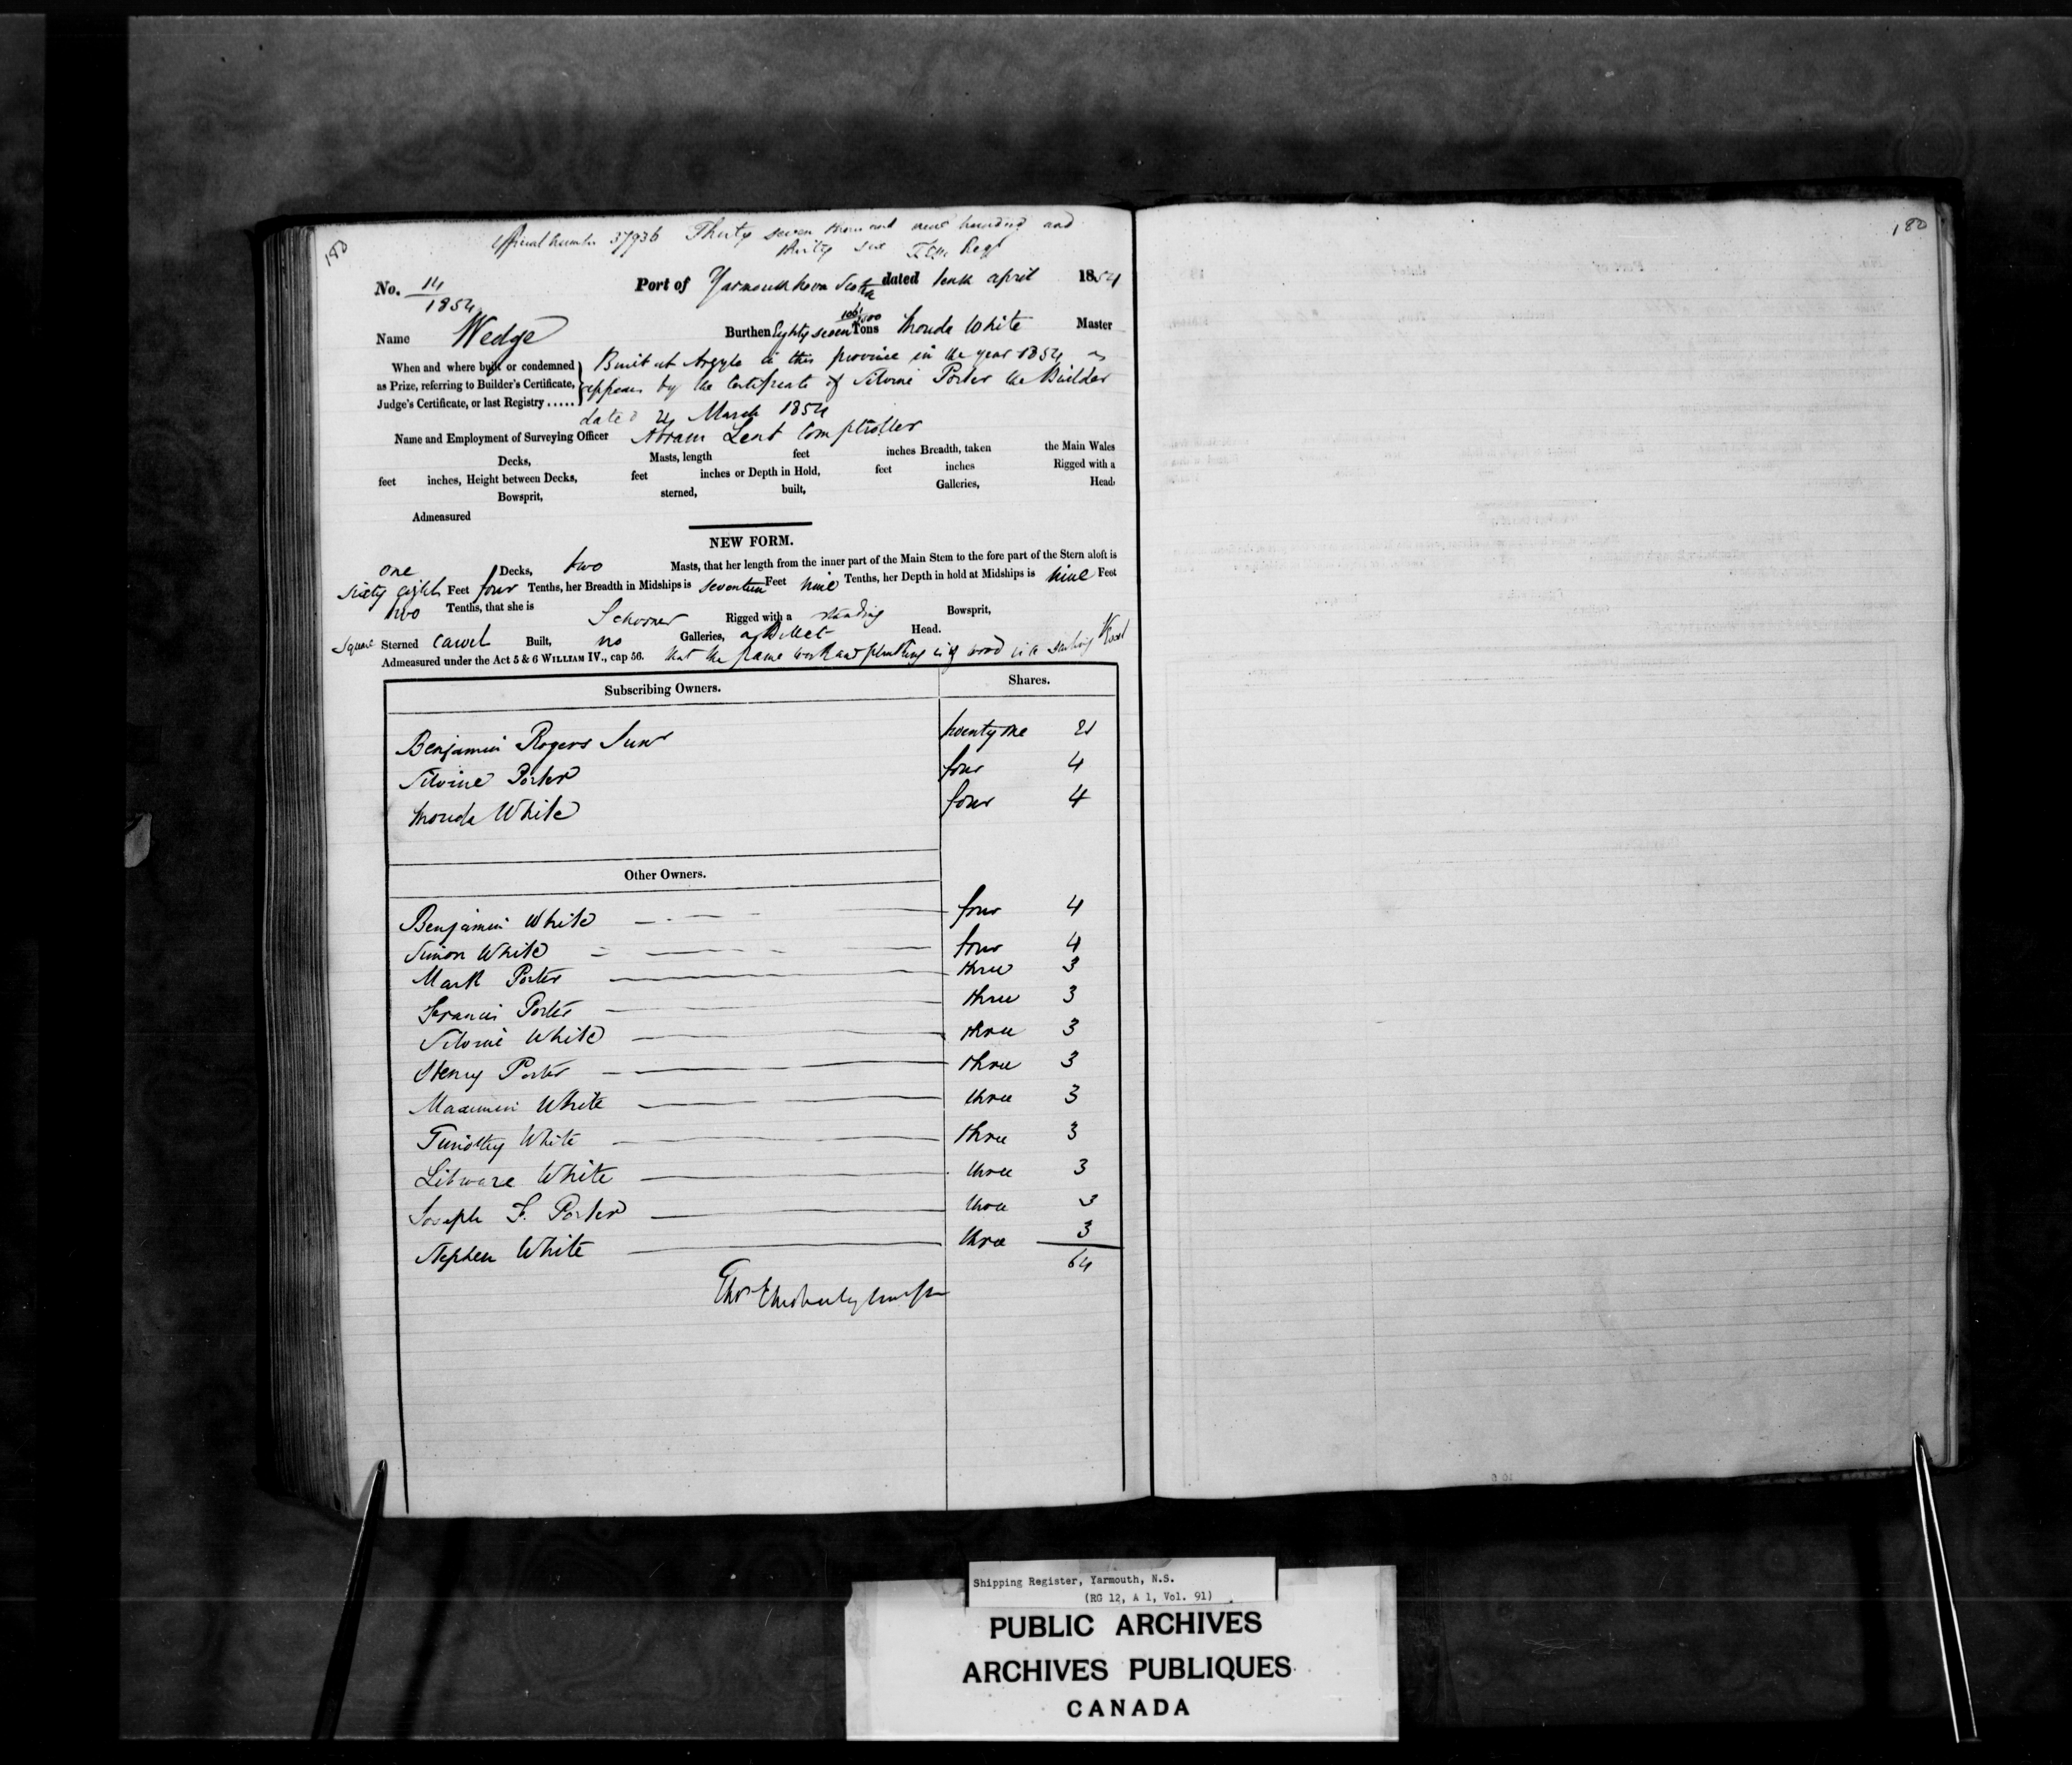 180
180
Official Number 37936 Thirty seven thousand nine hundred and
thirty six
No. 14
1854
Port of Yarmouth Nova Scotia dated tenth april 1854
Name Wedge
Burthen Eighty seven Tons White Master
When and where built or condemned
as Prize, referring to Builder's Certificate,
Judge's Certificate, or last Registry .....
Built at Argyle in this province in the year 1854 as
appears by the Certificate of Silvine Porter the Builder
dated 24 March 1854
Name and Employment of Surveying Officer Abram Lent Comptroller
Decks, Masts, length feet inches Breadth, taken the Main Wales
feet inches, Height between Decks, feet inches or Depth in Hold, feet inches Rigged with a
Bowsprit, sterned, built, Galleries, Head,
Admeasured
NEW FORM.
one Decks, two Masts, that her length from the inner part of the Main Stem to the fore part of the Stern aloft is
Sixty eight Feet four Tenths, her Breadth in Midships is seventeen Feet nine Tenths, her Depth in hold at Midships is nine Feet
two Tenths, that she is Schooner Rigged with a standing Bowsprit,
Square Sterned Carvel Built, no Galleries, a Billet Head.
Admeasured under the Act 5 & 6 WILLIAM IV., cap 56. that the frame work and planking is of wood is a sailing Vessel
Subscribing Owners. Shares.
Benjamin Rogers Junr twenty one 21
Silvine Porter four 4
White four 4
Other Owners.
Benjamin White four 4
Simon White four 4
Mark Porter three 3
Francis Porter three 3
Silvine White three 3
Henry Porter three 3
Maximin White three 3
Timothy White three 3
White three 3
Joseph F. Porter three 3
Stephen White three 3
64
Shipping Register, Yarmouth, N.S.
(RG 12, A 1, Vol. 91)
PUBLIC ARCHIVES
ARCHIVES PUBLIQUES
CANADA